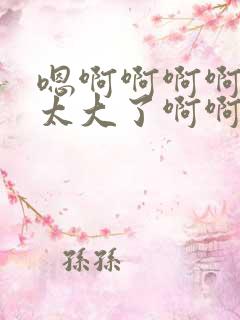 嗯啊啊啊啊
太大了啊啊
孫孫